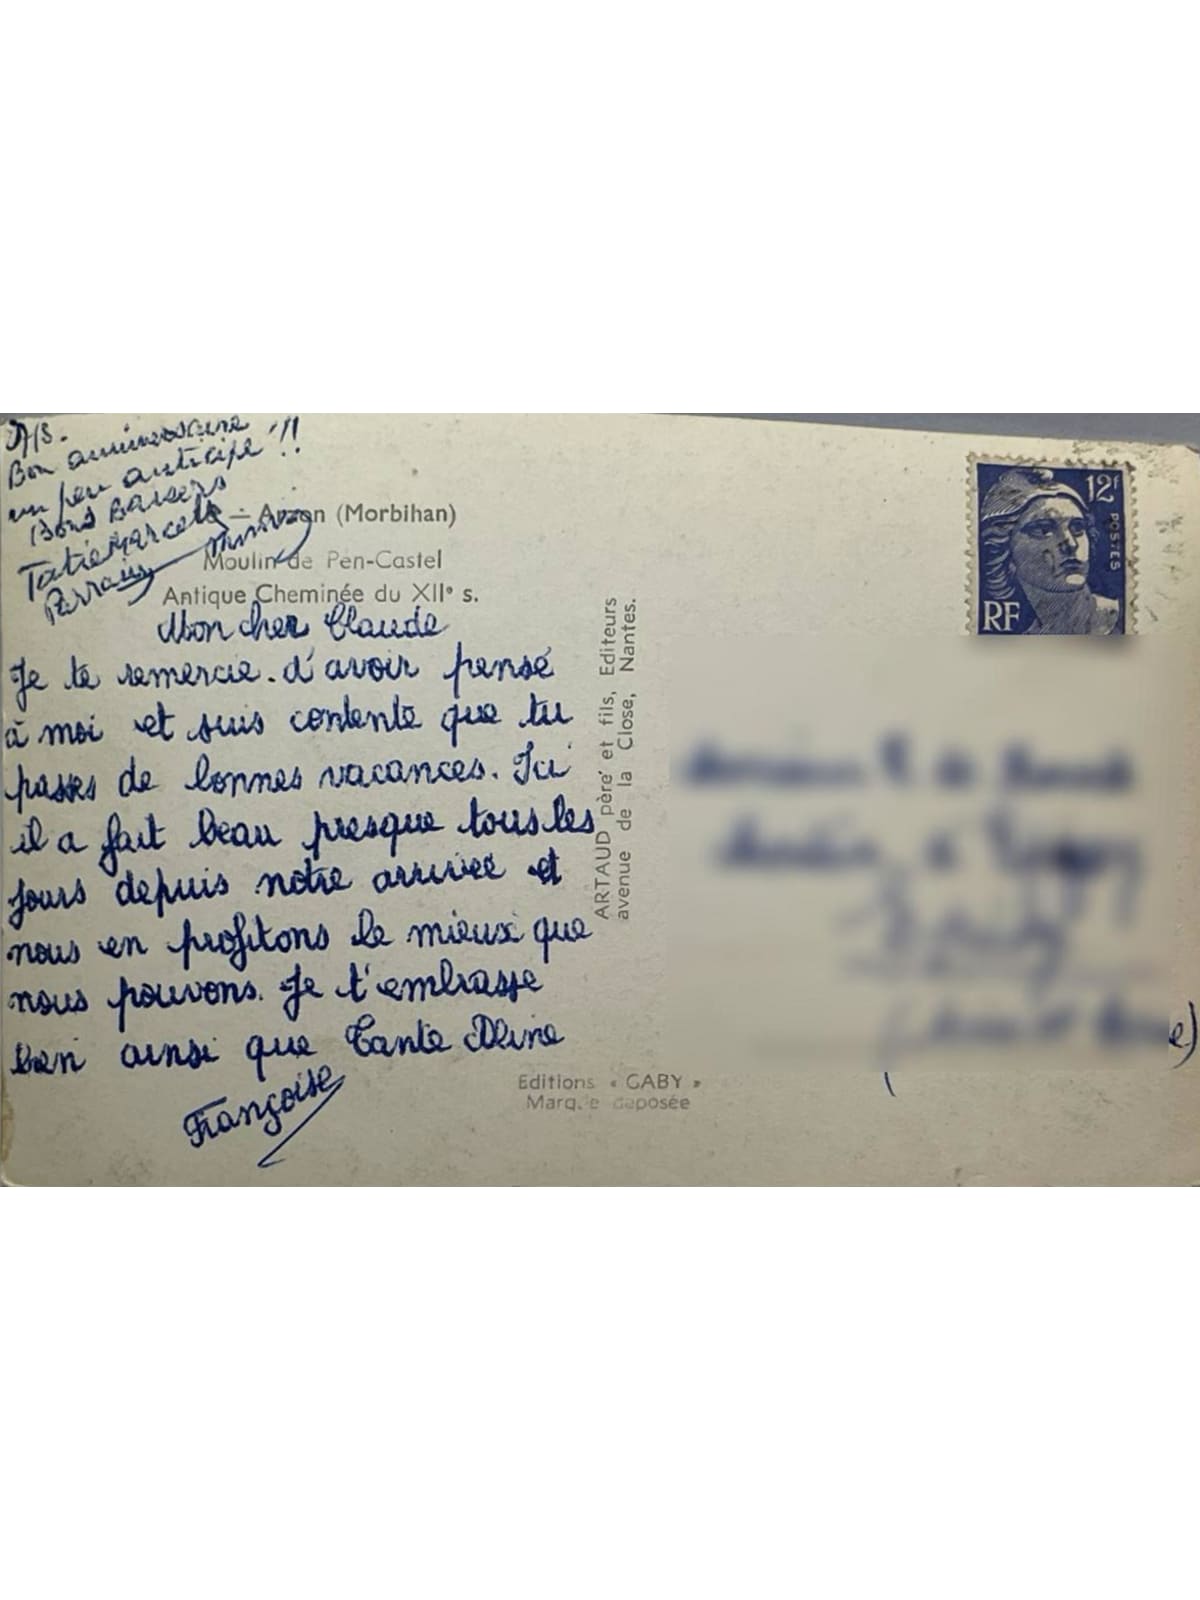 Bon anniversaire
un peu anticipé !!
Bons Baisers
Tatie Marcelle
Parrain
— Arzon (Morbihan)
Moulin de Pen-Castel
Antique Cheminée du XIIe s.
Mon cher Claude
Je te remercie. d'avoir pensé
à moi et suis contente que tu
passes de bonnes vacances. Ici
il a fait beau presque tous les
jours depuis notre arrivée et
nous en profitons le mieux que
nous pouvons. Je t'embrasse
bien ainsi que Tante Aline
Françoise
ARTAUD père et fils, Editeurs
avenue de la Close, Nantes.
Editions « GABY »
Marque déposée
12f
POSTES
RF